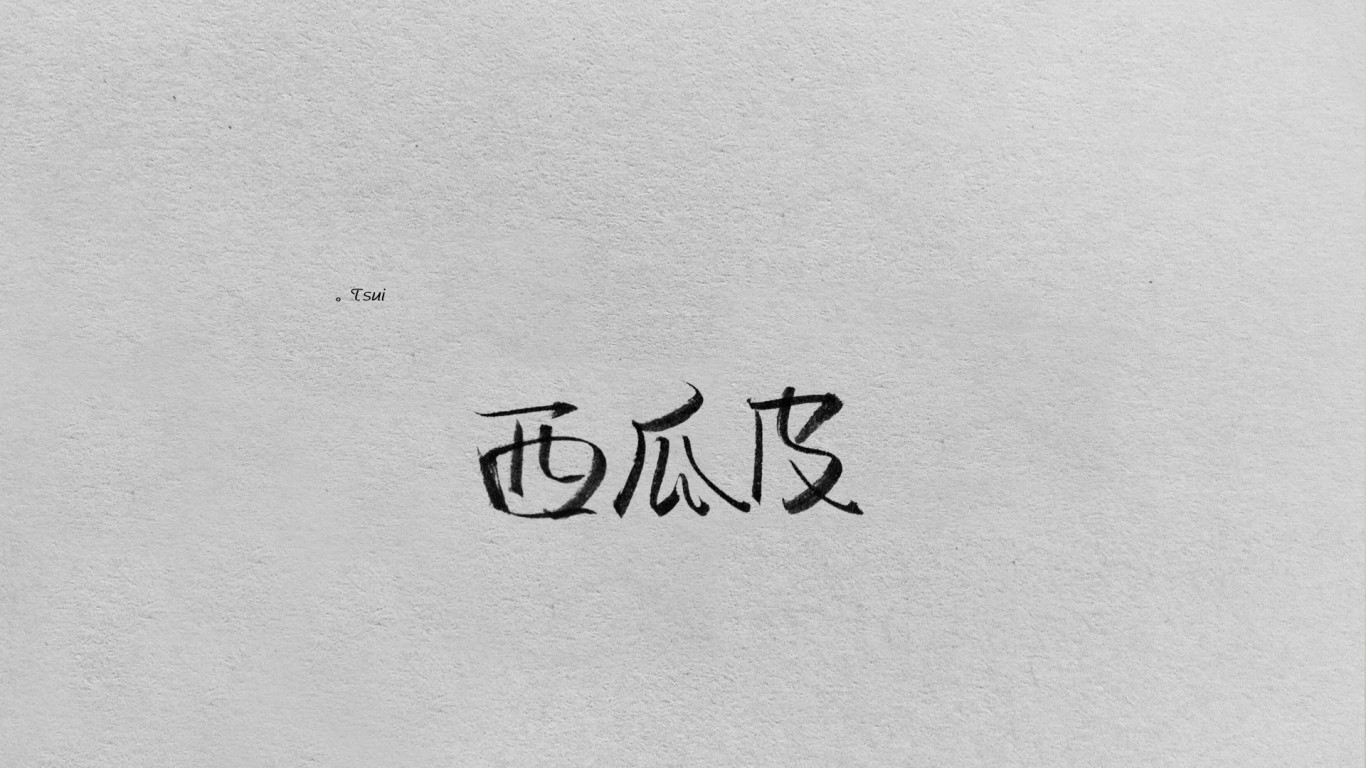 。Tsui
西瓜皮